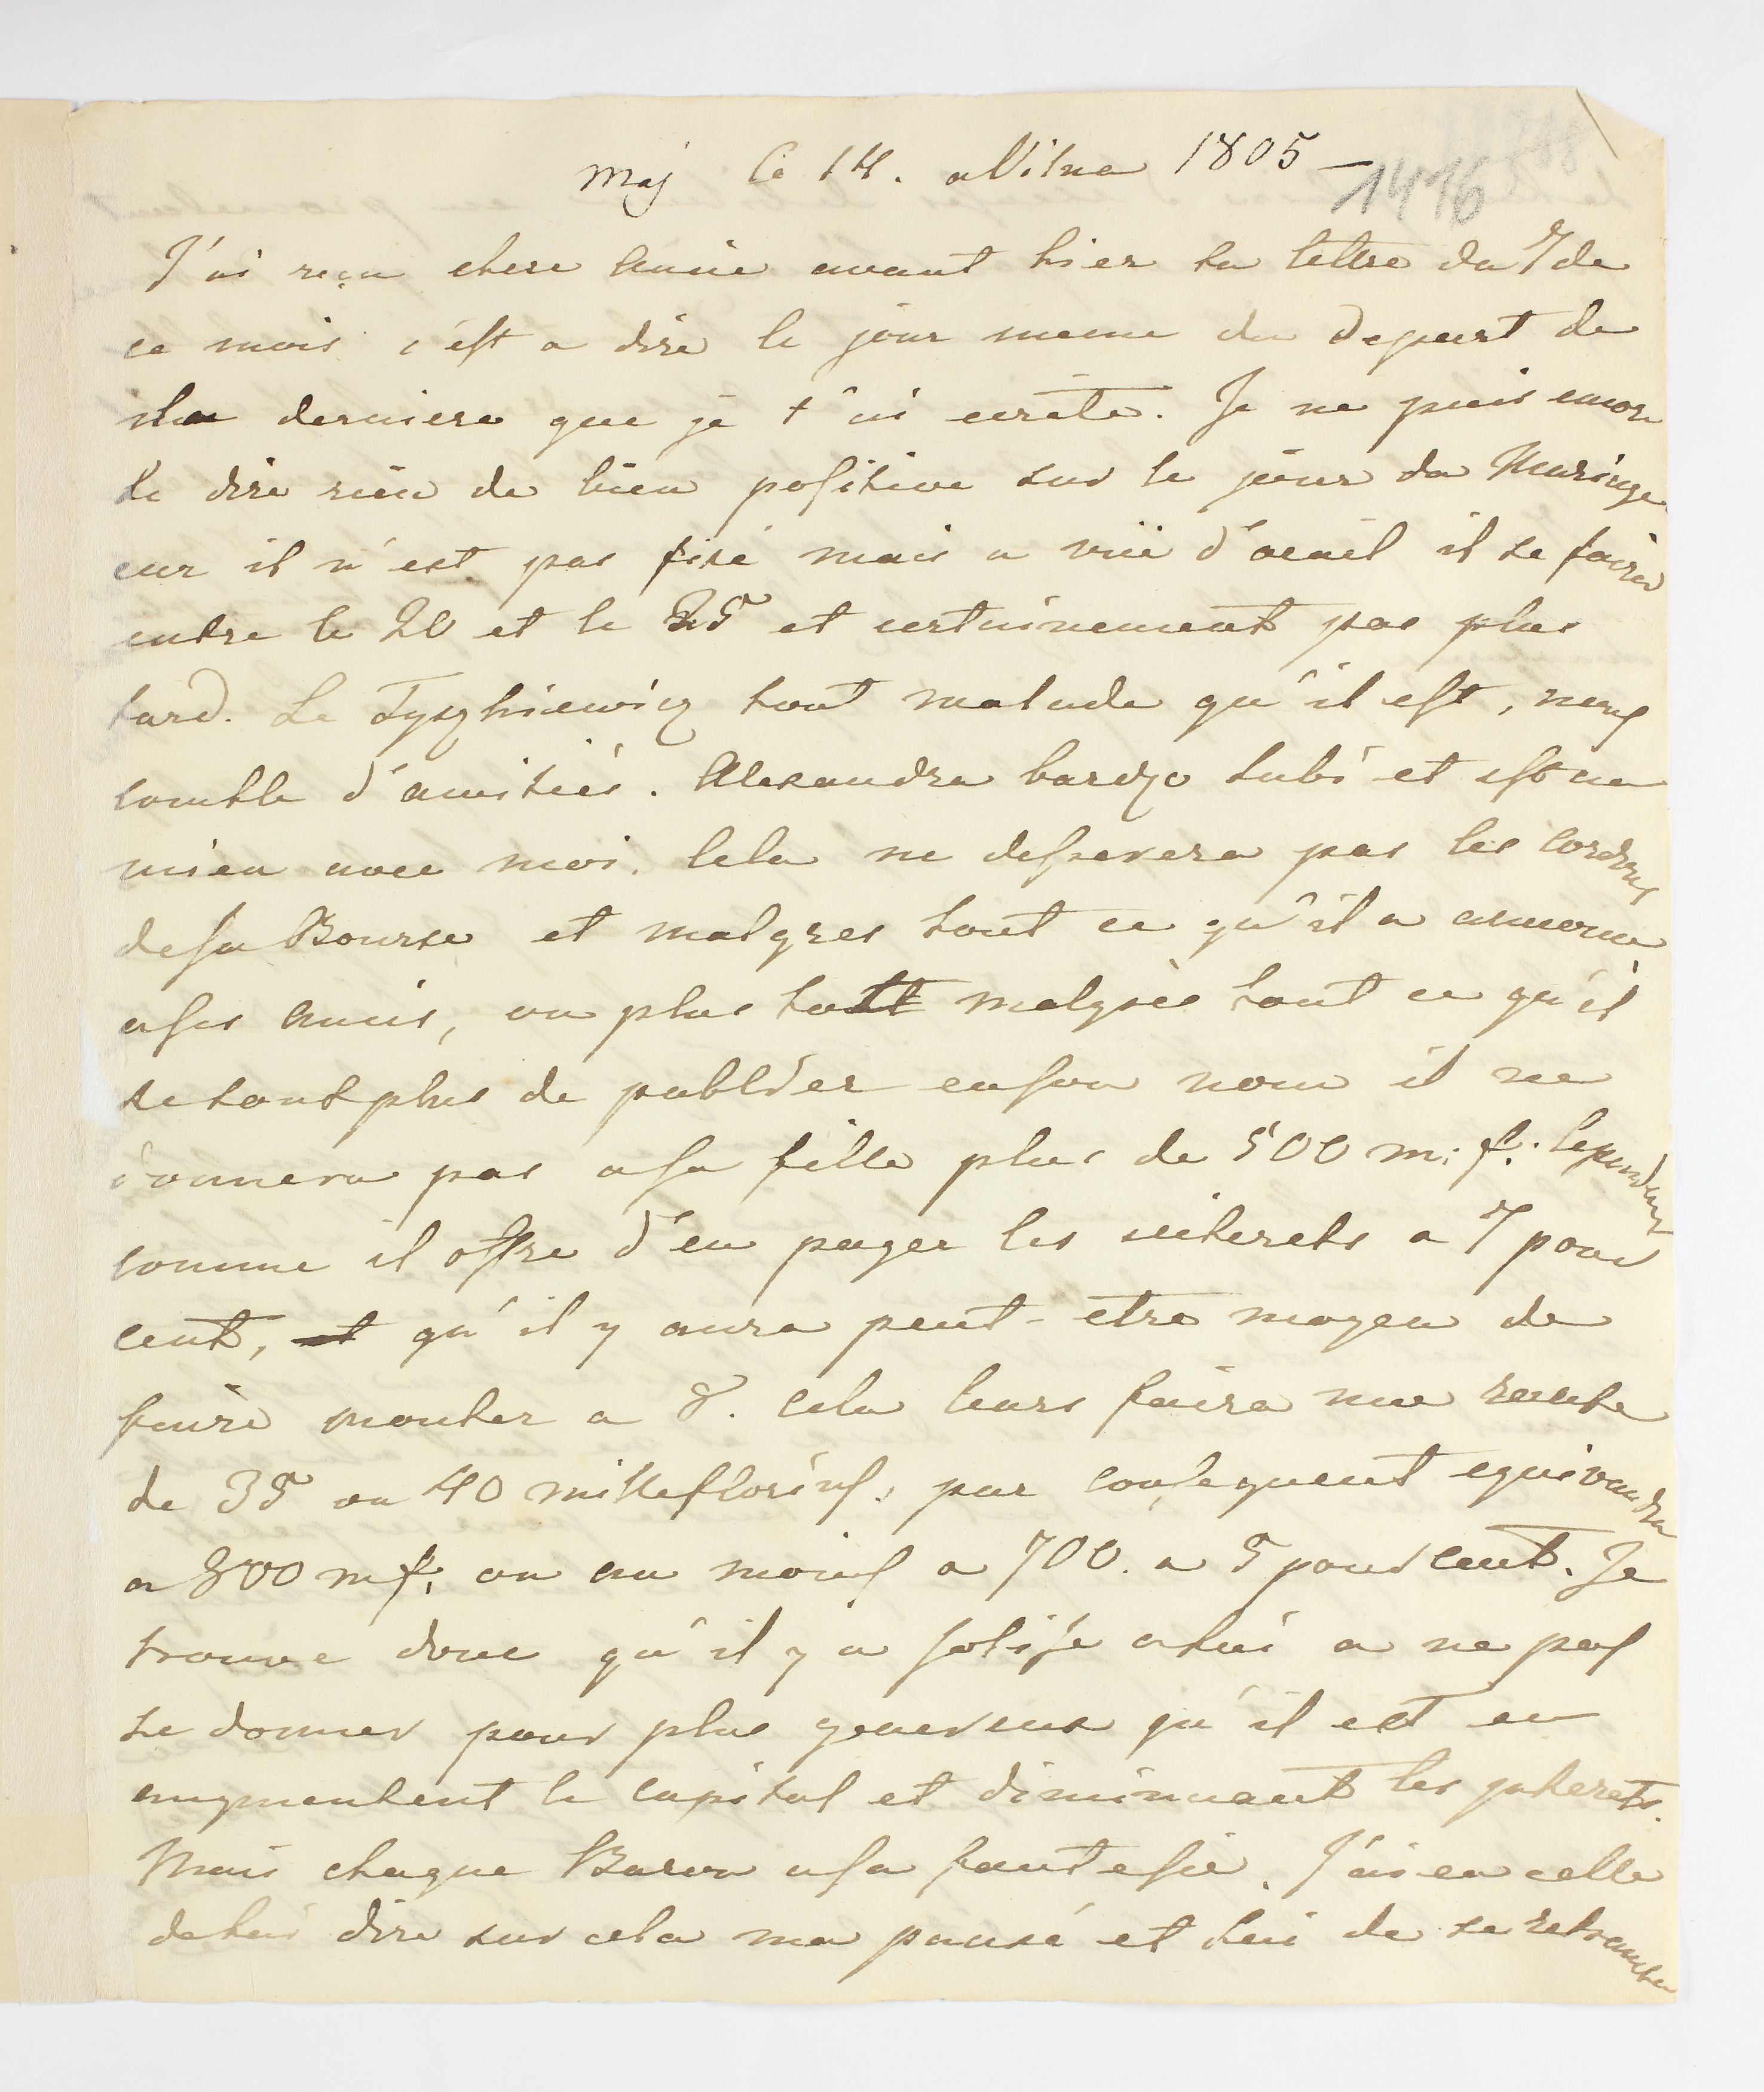 Maj Ce 14. a Vilna 1805 —
1416
J'ai reçu chere Amie avant hier ta lettre du 7 de
ce mois c'est a dire le jour meme du depart de
la derniere que je t'ai ecrite. Je ne puis encore
te dire rien de bien positive sur le jour du Mariage
car il n'est pas fixé mais a vüe d'oeuil il se faira
entre le 20 et le 25 et certainement pas plus
tard. Le Tyszkiewicz tout malade qu'il est, nous
comble d'amitiés. Alexandra bardzo lubi et est au
mieu avec moi. Cela ne desserera pas les cordons
de sa Bourse et malgres tout ce qu'il a annoncé
a ses Amis, ou plus tott malgrès tout ce qu'il
de publier en son nom il ne
donnera pas a sa fille plus de 500 m: f: Cependant
comme il offre d'en payer les interets a 7 pour
cent, et qu'il y aura peut-etre moyen de
faire monter a 8. Cela leurs faira une rente
de 35 ou 40 mille florins, par consequent equivaudra
a 800 mf: ou au moins a 700. a 5 pour cent. Je
trouve donc qu'il y a sotise a lui a ne pas
se donner pour plus genereux qu'il est en
augmentent le capital et diminuant les interets.
Mais chaque Baron a sa fantesie. J'ai eu celle
de lui dire sur cela ma pensé et lui de se retrancher